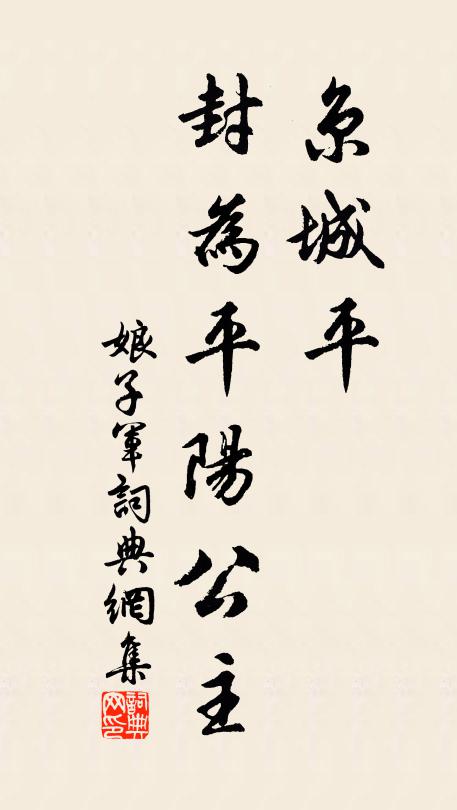 京城平
封為平陽公主
娘子軍詞典網集
詞典网印